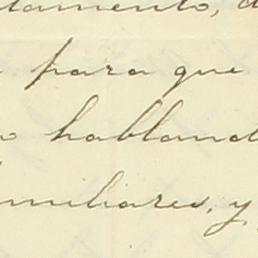 tamento, d
para que
o habland
amiliares, y